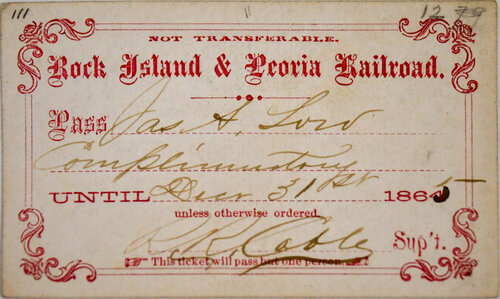 111 11 12 79
NOT TRANSFERABLE.
Rock Island & Peoria Railroad.
Pass Jas A. Lord
Complimentary
UNTIL Decr 31st 1865
unless otherwise ordered.
R. R. Cable Sup't.
This ticket will pass but one person.